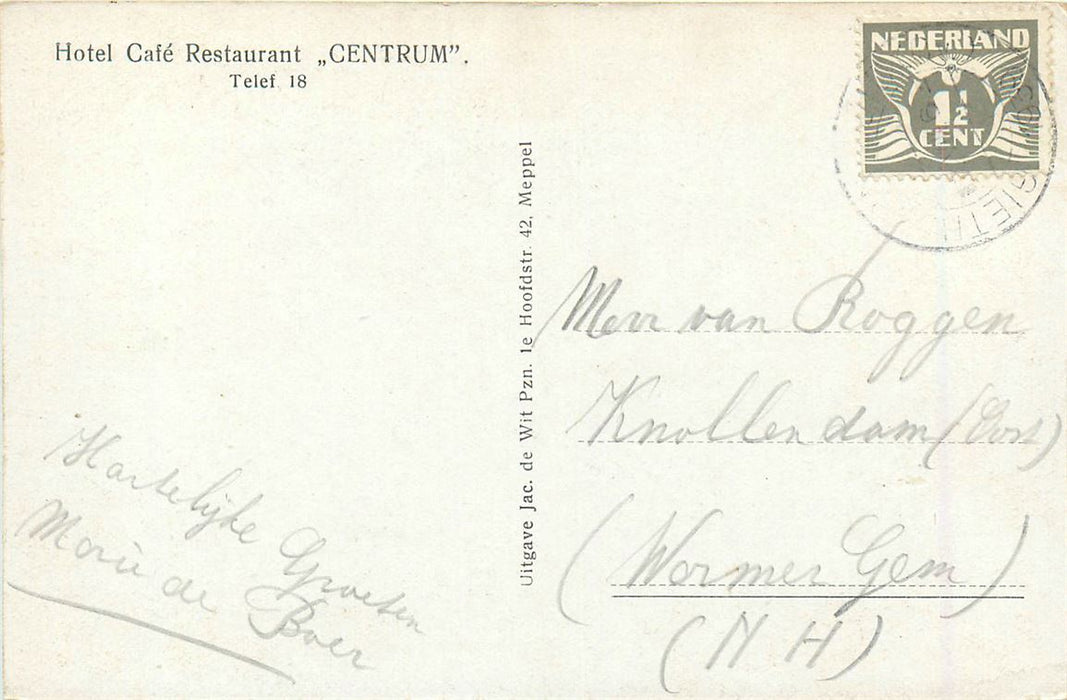 Hotel Café Restaurant „CENTRUM”.
Telef 18
NEDERLAND
1½
CENT
Uitgave Jac. de Wit Pzn. 1e Hoofdstr. 42, Meppel
van Roggen
Knollendam (Oost)
(Wormer Gem)
(N H)
Hartelijke Groeten
de Boer